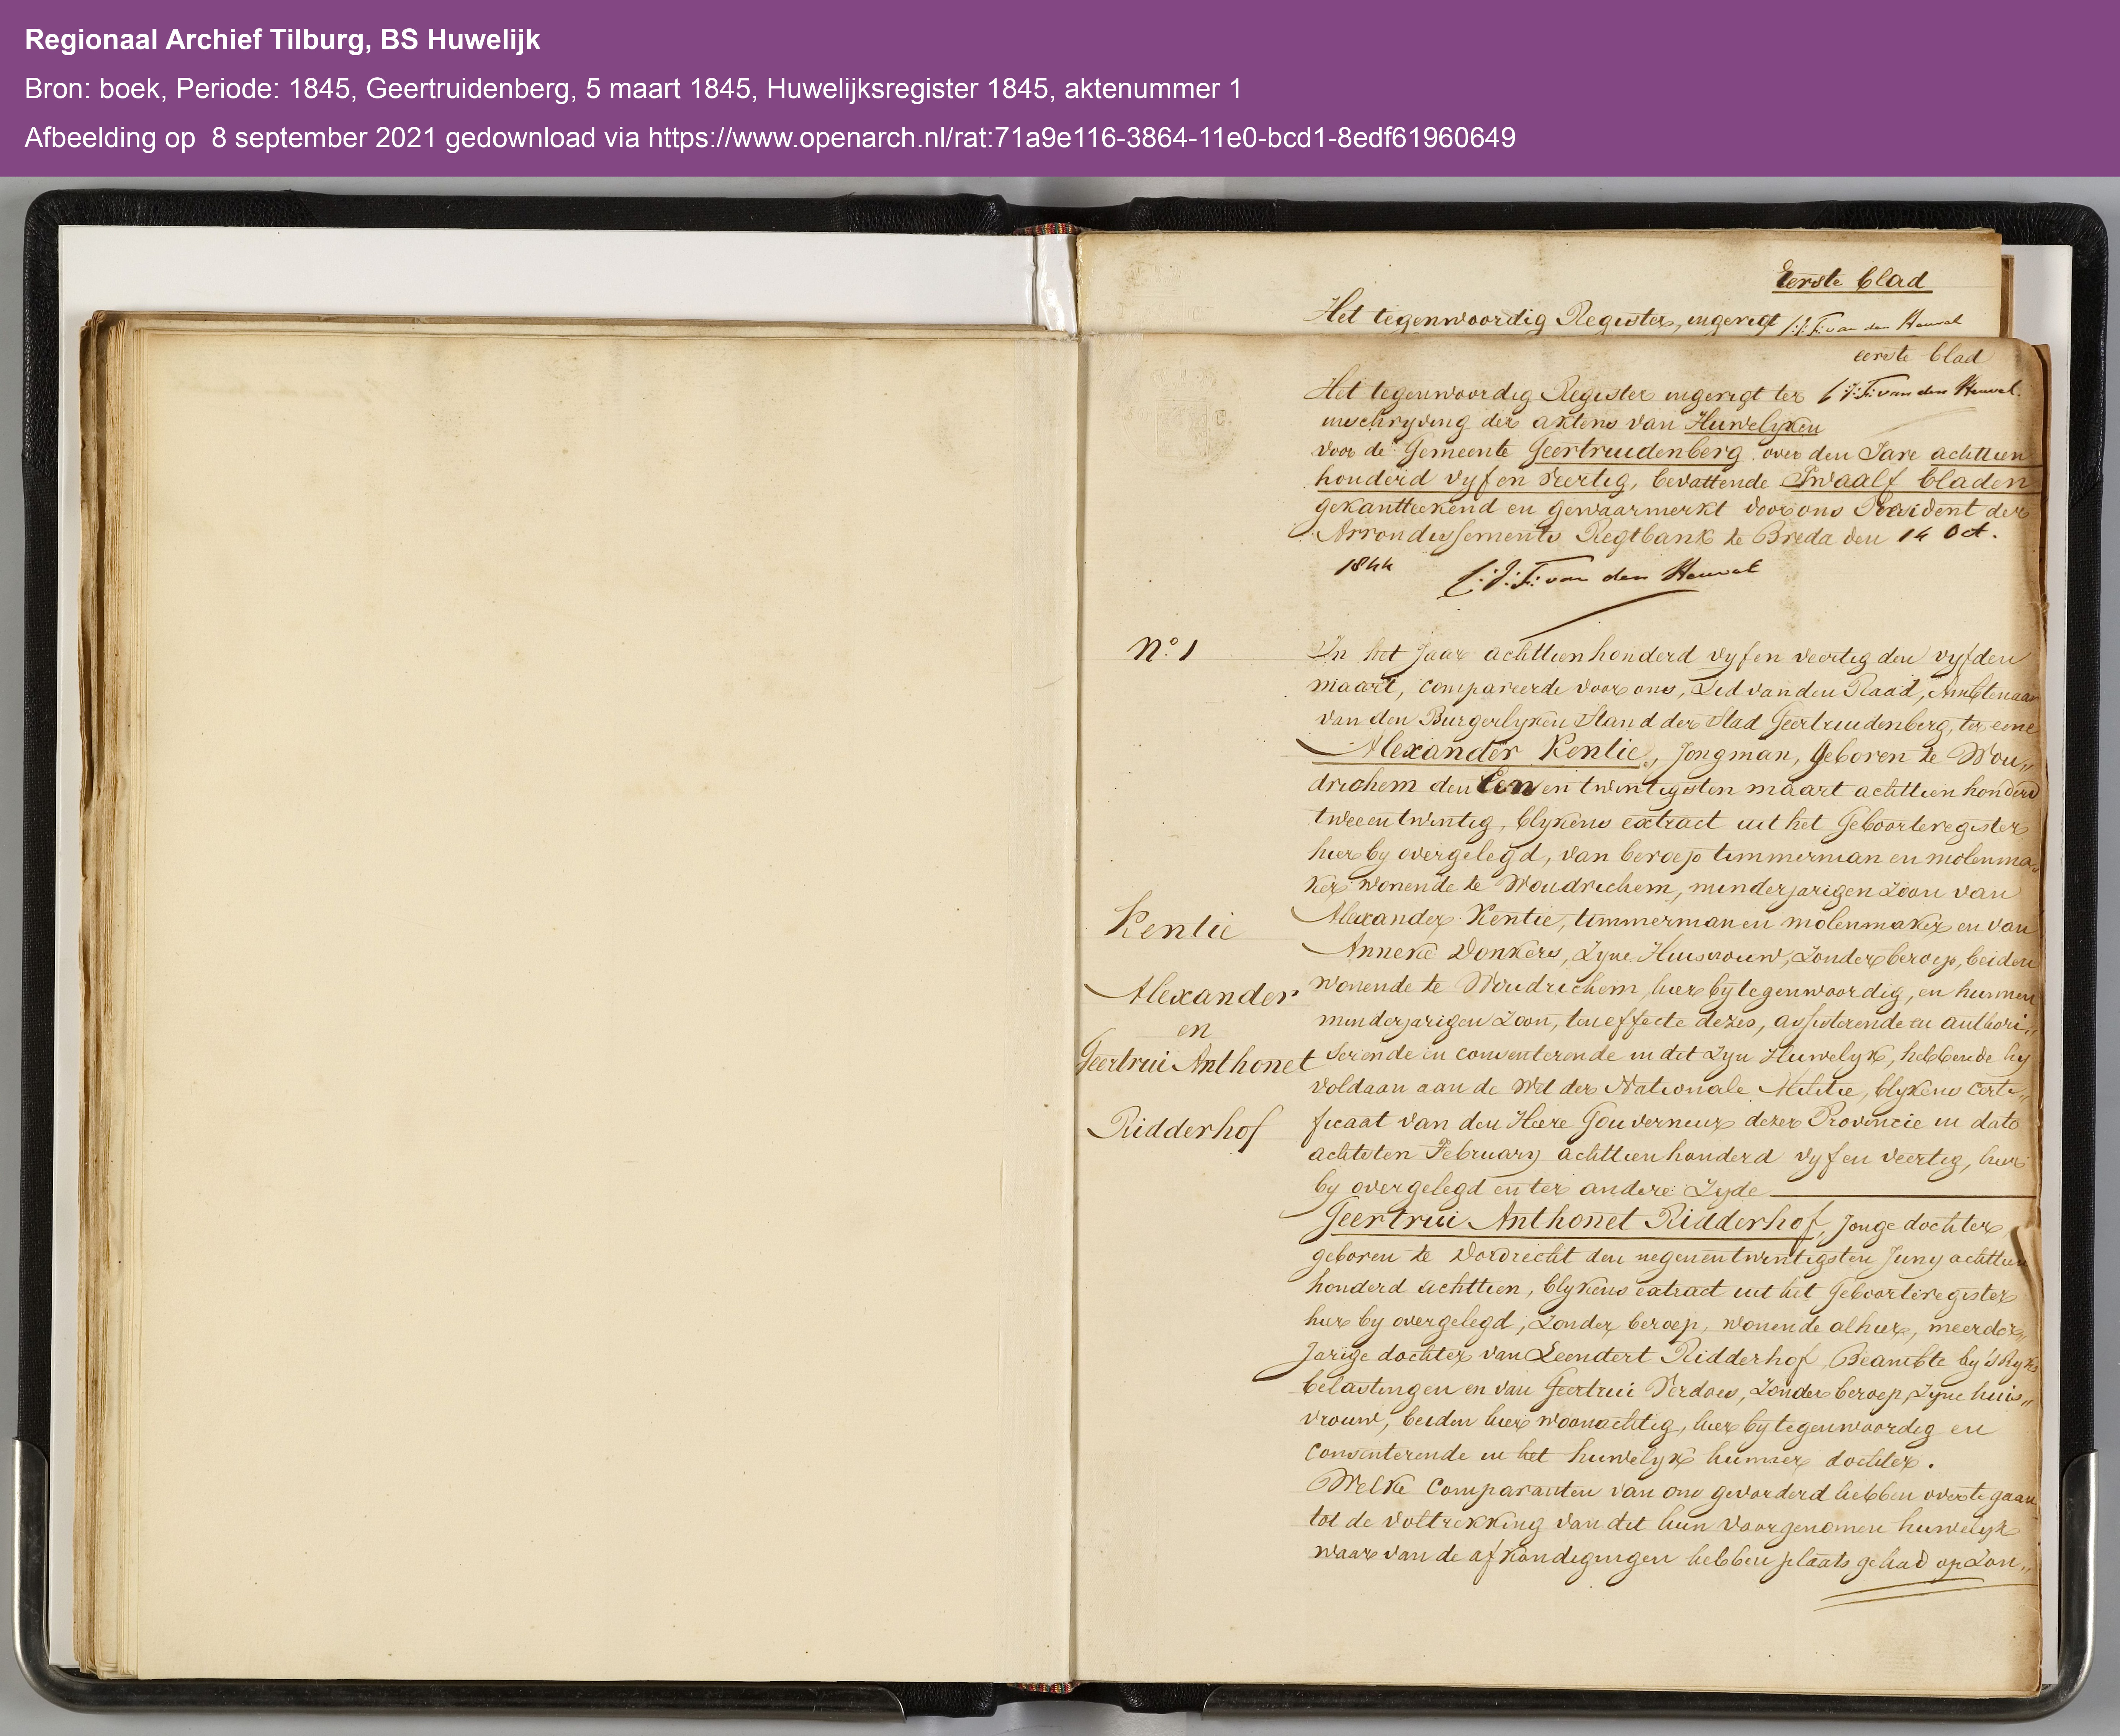 Regionaal Archief Tilburg, BS Huwelijk
Bron: boek, Periode: 1845, Geertruidenberg, 5 maart 1845, Huwelijksregister 1845, aktenummer 1
Afbeelding op  8 september 2021 gedownload via https://www.openarch.nl/rat:71a9e116-3864-11e0-bcd1-8edf61960649
Eerste blad
Het tegenwoordig Register, ingerigt van den Heuvel
eerste blad
Het tegenwoordig Register ingerigt ter van den Heuvel.
inschryving der aktens van Huwelyken
voor de Gemeente Geertruidenberg over den Jare achttien
honderd vyf en veertig, bevattende Twaalf bladen
gekantteekend en gewaarmerkt door ons President der
Arrondissements Regtbank te Breda den 14 Oct.
1844 van den Heuvel
N.º 1
In het Jaar achttienhonderd vyf en veertig den vyfden
maart, compareerde voor ons, Lid van den Raad, Ambtenaar
van den Burgerlyken Stand der Stad Geertruidenberg, ter eene
Alexander Kentie, Jongman, geboren te Wou„
drichem den Een en twintigsten maart achttien honderd
twee en twintig, blykens extract uit het Geboorteregister
hier by overgelegd, van beroep timmerman en molenma„
ker wonende te Woudrichem, minderjarigen Zoon van
Alexander Kentie, timmerman en molenmaker en van
Anneke Donkers, Zyne Huisvrouw, Zonder beroep, beiden
wonende te Woudrichem, hier by tegenwoordig, en hunnen
minderjarigen Zoon, ten effecte dezes, assisterende en authori„
serende en consenterende in dit Zyn Huwelyk, hebbende hy
voldaan aan de Wet der Nationale Militie, blykens Certi„
ficaat van den Heere Gouverneur dezer Provincie in dato
achtsten February achttien honderd vyf en veertig, hier
by overgelegd en ter andere Zyde
Geertrui Anthonet Ridderhof, Jonge dochter
geboren te Dordrecht den negenentwintigsten Juny achttien
honderd achttien, blykens extract uit het Geboorteregister
hier by overgelegd, Zonder beroep, wonende alhier, meerder„
Jarige dochter van Leendert Ridderhof, Beambte by 's Ryks
belastingen en van Geertrui Verdoes, Zonder beroep, Zyne huis„
vrouw, beiden hier woonachtig, hier by tegenwoordig en
consenterende in het huwelyk hunner dochter.
Welke Comparanten van ons gevorderd hebben over te gaan
tot de voltrekking van dit hun voorgenomen huwelyk
waar van de afkondigingen hebben plaats gehad op Zon„
Kentie
Alexander
en
Geertrui Anthonet
Ridderhof